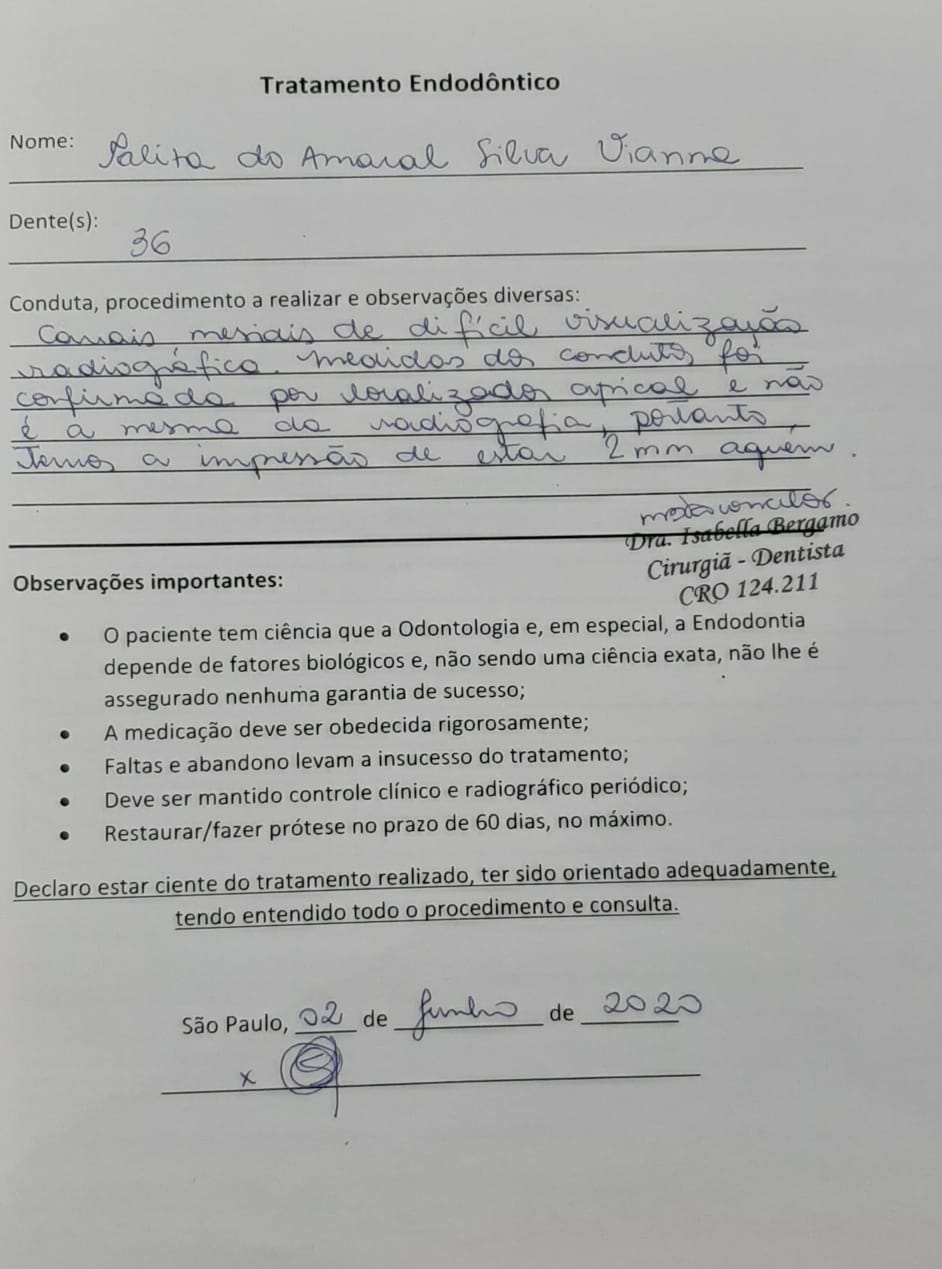 Tratamento Endodôntico
Nome: Talita do Amaral Silva Vianna
Dente(s): 36
Conduta, procedimento a realizar e observações diversas:
Canais mesiais de difícil visualização
radiográfica. Medidas dos condutos foi
confirmada por localizador apical e não
é a mesma da radiografia, portanto,
temos a impressão de estar 2mm aquém.
Dra. Isabella Bergamo
Cirurgiã - Dentista
CRO 124.211
Observações importantes:
• O paciente tem ciência que a Odontologia e, em especial, a Endodontia
depende de fatores biológicos e, não sendo uma ciência exata, não lhe é
assegurado nenhuma garantia de sucesso;
• A medicação deve ser obedecida rigorosamente;
• Faltas e abandono levam a insucesso do tratamento;
• Deve ser mantido controle clínico e radiográfico periódico;
• Restaurar/fazer prótese no prazo de 60 dias, no máximo.
Declaro estar ciente do tratamento realizado, ter sido orientado adequadamente,
tendo entendido todo o procedimento e consulta.
São Paulo, 02 de Junho de 2020
x